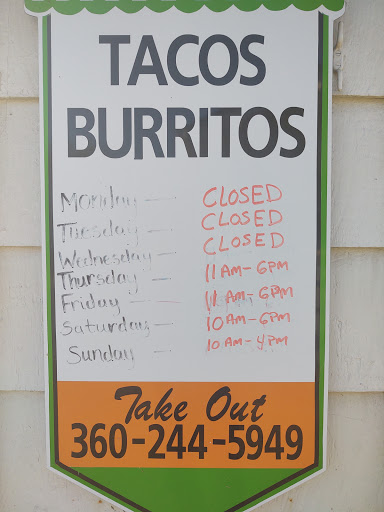 TACOS
BURRITOS
Monday — CLOSED
Tuesday — CLOSED
Wednesday — CLOSED
Thursday — 11 AM - 6 PM
Friday — 11 AM - 6 PM
Saturday — 10 AM - 6 PM
Sunday — 10 AM - 4 PM
Take Out
360-244-5949